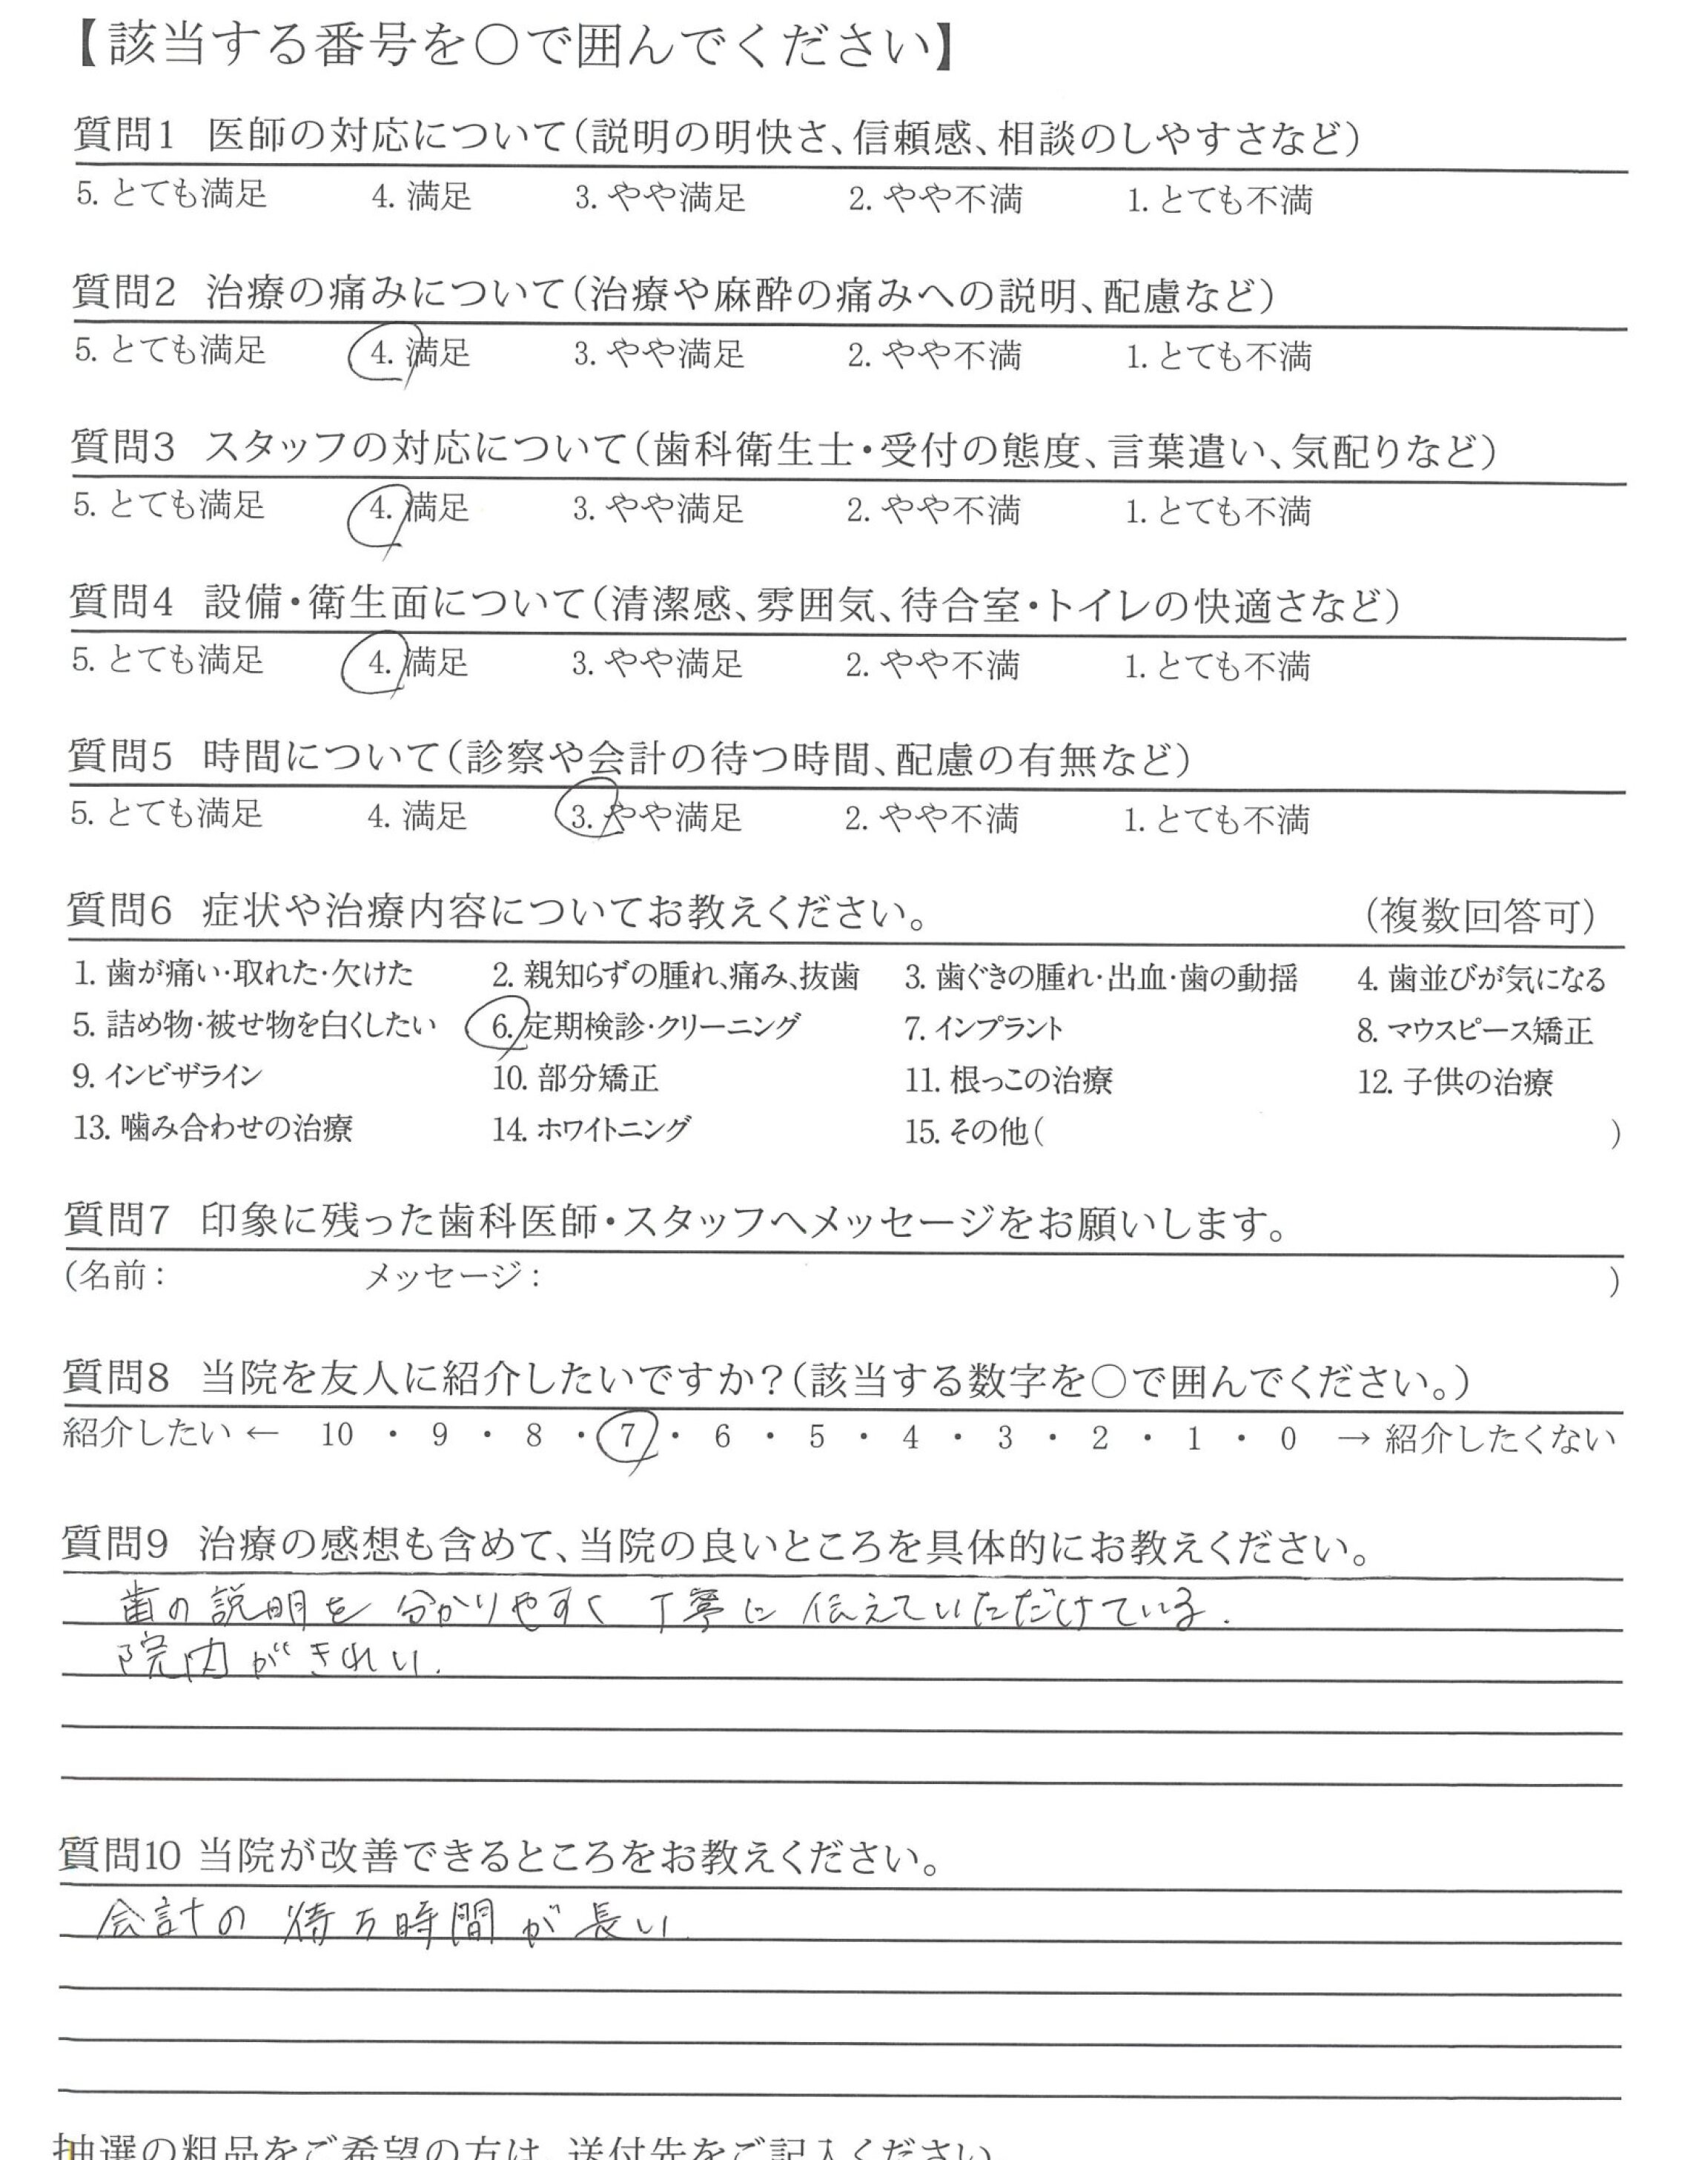 【該当する番号を○で囲んでください】
質問1 医師の対応について(説明の明快さ、信頼感、相談のしやすさなど)
5. とても満足 4. 満足 3. やや満足 2. やや不満 1. とても不満
質問2 治療の痛みについて(治療や麻酔の痛みへの説明、配慮など)
5. とても満足 4. 満足 3. やや満足 2. やや不満 1. とても不満
質問3 スタッフの対応について(歯科衛生士・受付の態度、言葉遣い、気配りなど)
5. とても満足 4. 満足 3. やや満足 2. やや不満 1. とても不満
質問4 設備・衛生面について(清潔感、雰囲気、待合室・トイレの快適さなど)
5. とても満足 4. 満足 3. やや満足 2. やや不満 1. とても不満
質問5 時間について(診察や会計の待つ時間、配慮の有無など)
5. とても満足 4. 満足 3. やや満足 2. やや不満 1. とても不満
質問6 症状や治療内容についてお教えください。 (複数回答可)
1. 歯が痛い・取れた・欠けた 2. 親知らずの腫れ、痛み、抜歯 3. 歯ぐきの腫れ・出血・歯の動揺 4. 歯並びが気になる
5. 詰め物・被せ物を白くしたい 6. 定期検診・クリーニング 7. インプラント 8. マウスピース矯正
9. インビザライン 10. 部分矯正 11. 根っこの治療 12. 子供の治療
13. 噛み合わせの治療 14. ホワイトニング 15. その他( )
質問7 印象に残った歯科医師・スタッフへメッセージをお願いします。
(名前: メッセージ: )
質問8 当院を友人に紹介したいですか?(該当する数字を○で囲んでください。)
紹介したい ← 10 ・ 9 ・ 8 ・ 7 ・ 6 ・ 5 ・ 4 ・ 3 ・ 2 ・ 1 ・ 0 → 紹介したくない
質問9 治療の感想も含めて、当院の良いところを具体的にお教えください。
歯の説明を分かりやすく丁寧に伝えていただけている.
院内がきれい.
質問10 当院が改善できるところをお教えください。
会計の待ち時間が長い
抽選の粗品をご希望の方は、送付先をご記入ください